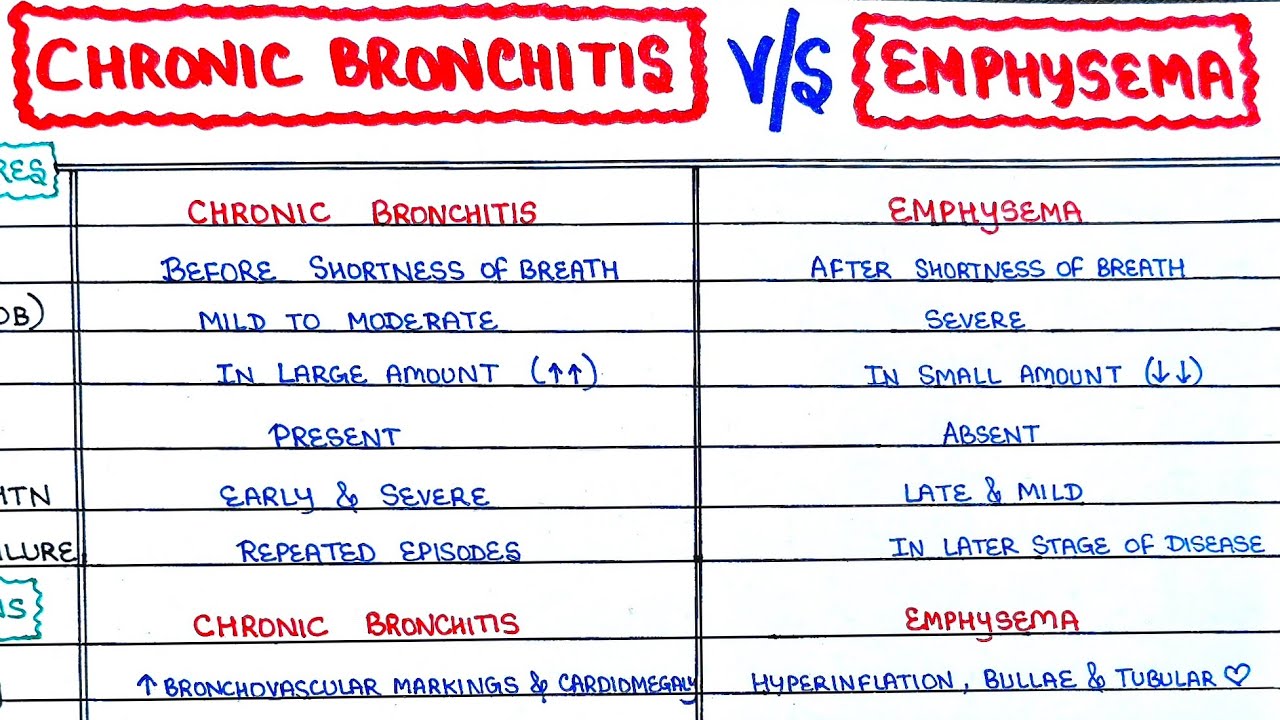 CHRONIC BRONCHITIS V/S EMPHYSEMA
RES
CHRONIC BRONCHITIS EMPHYSEMA
BEFORE SHORTNESS OF BREATH AFTER SHORTNESS OF BREATH
OB) MILD TO MODERATE SEVERE
IN LARGE AMOUNT (↑↑) IN SMALL AMOUNT (↓↓)
PRESENT ABSENT
HTN EARLY & SEVERE LATE & MILD
ILURE REPEATED EPISODES IN LATER STAGE OF DISEASE
NS CHRONIC BRONCHITIS EMPHYSEMA
) ↑ BRONCHOVASCULAR MARKINGS & CARDIOMEGALY HYPERINFLATION, BULLAE & TUBULAR ♡